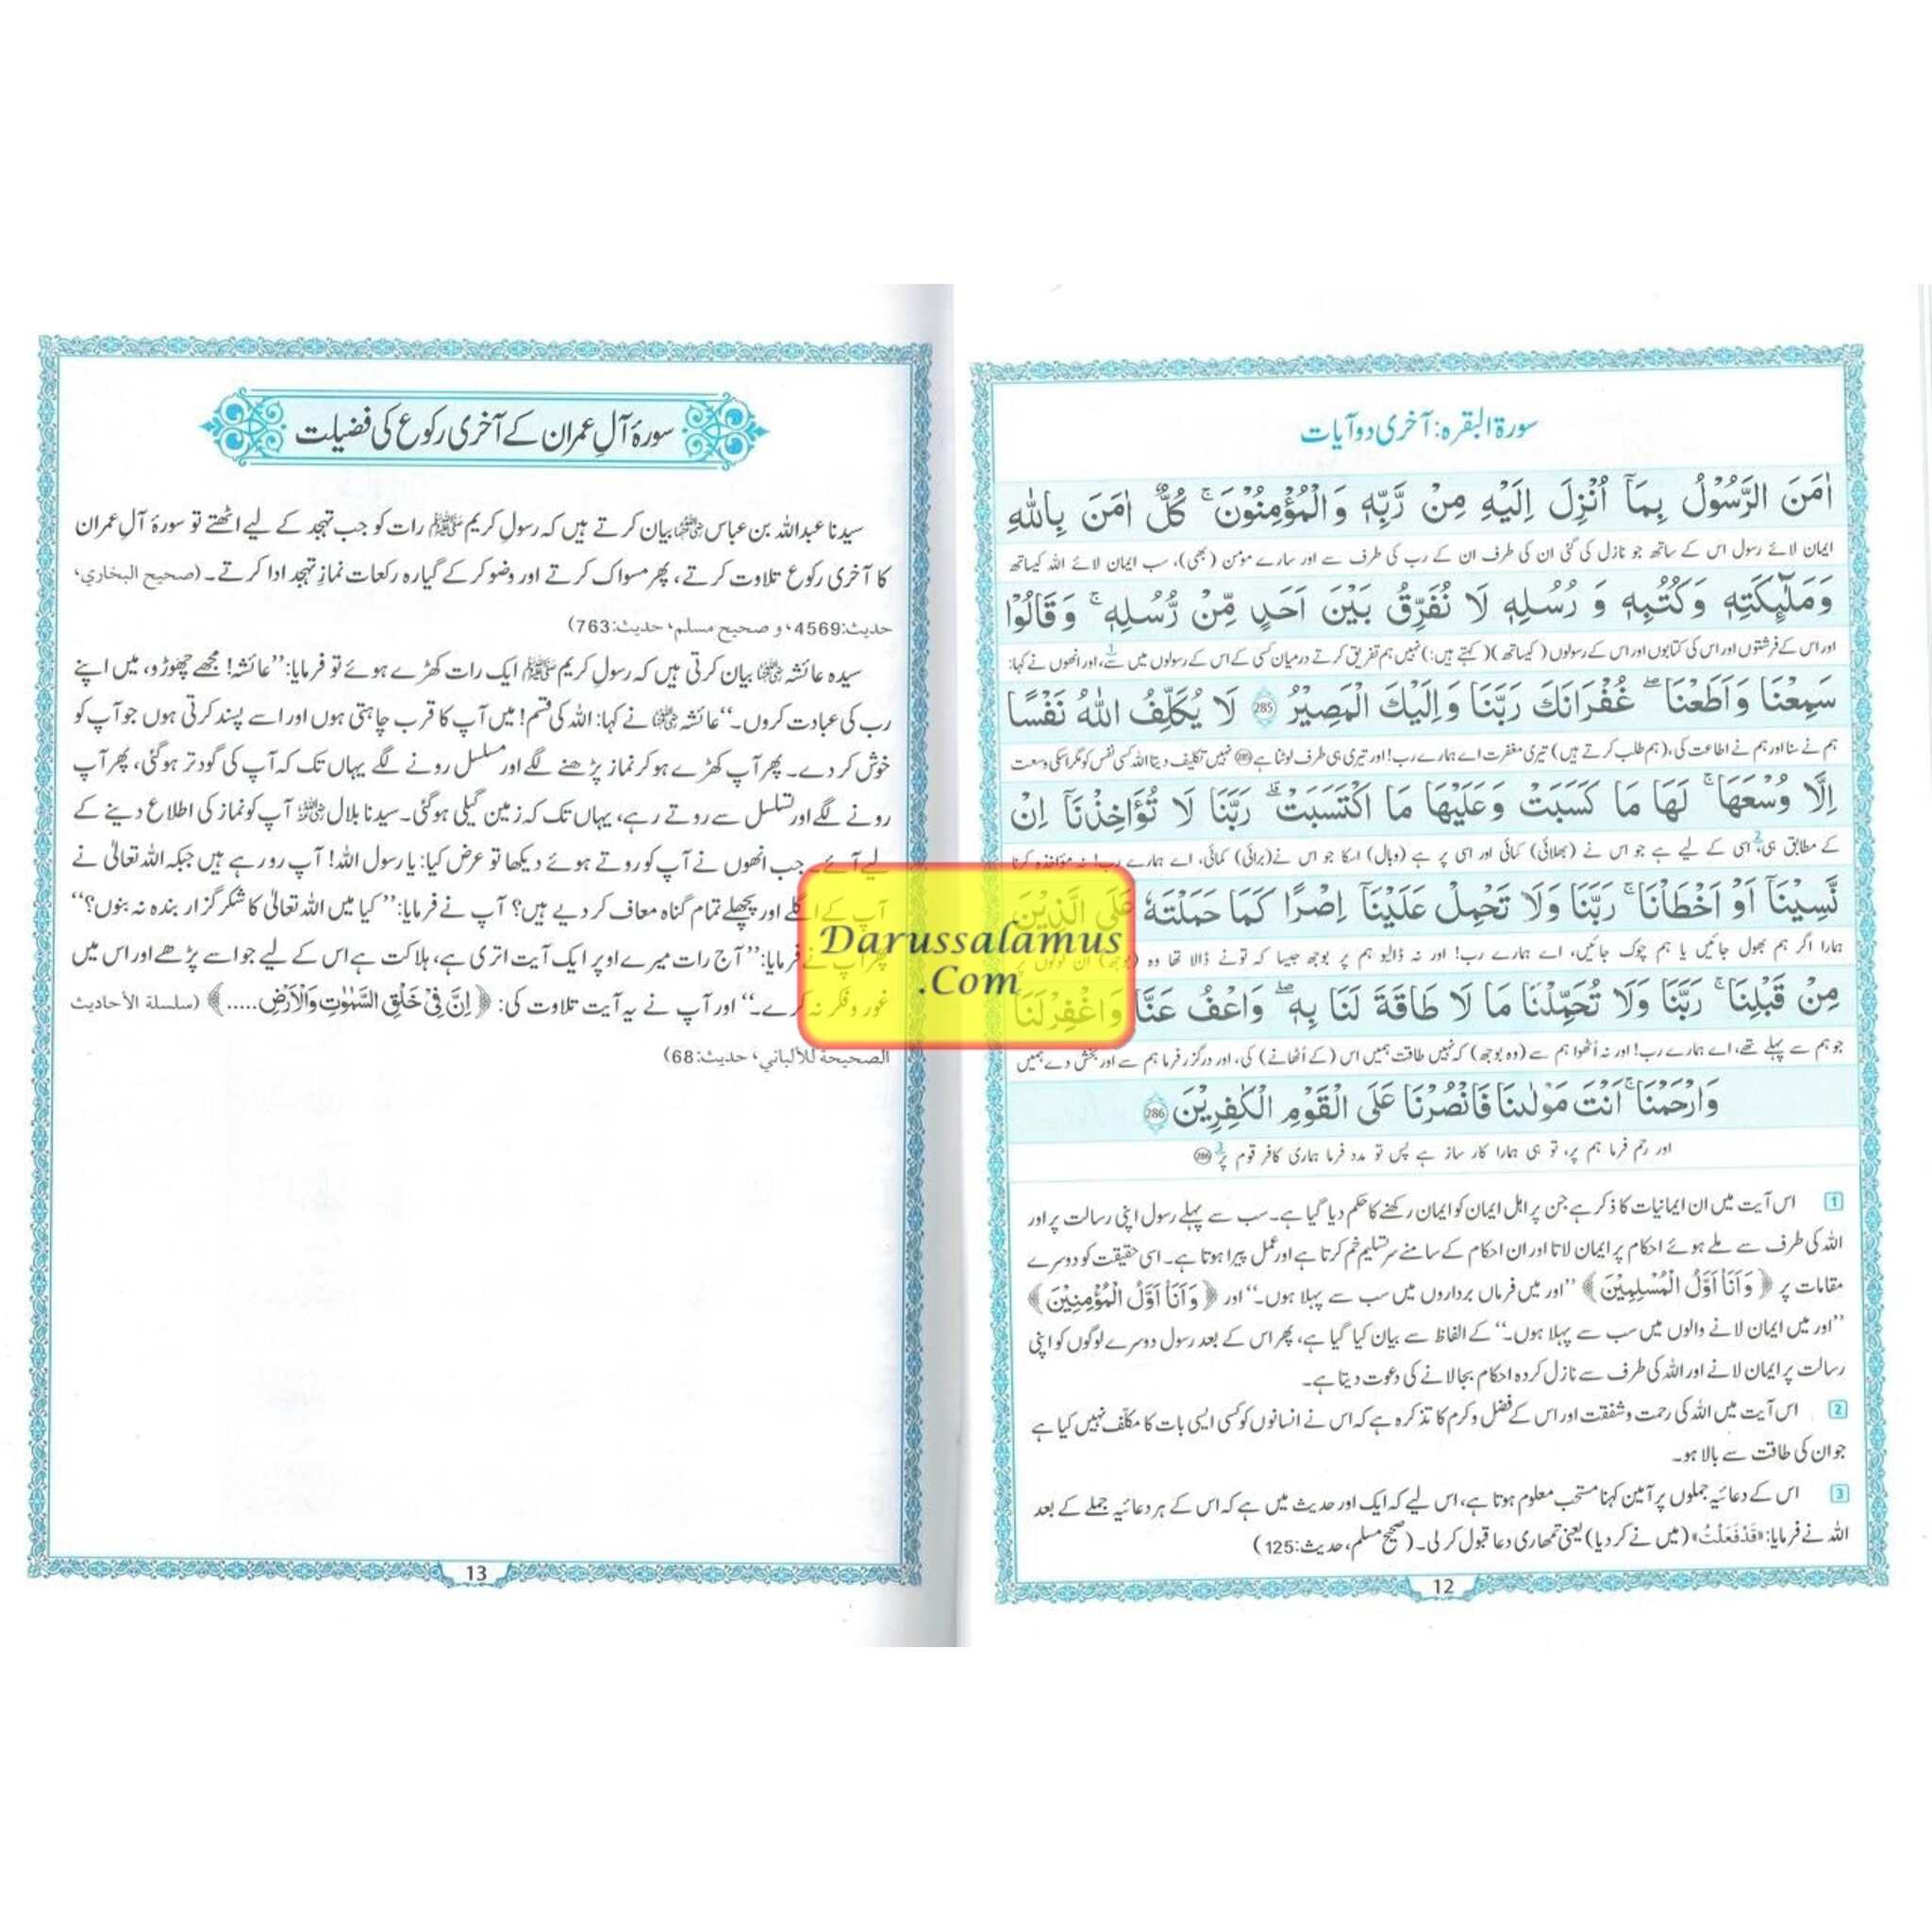 سورۃ البقرہ: آخری دو آیات
اٰمَنَ الرَّسُوْلُ بِمَاۤ اُنْزِلَ اِلَيْهِ مِنْ رَّبِّهٖ وَالْمُؤْمِنُوْنَ ۚ كُلٌّ اٰمَنَ بِاللّٰهِ
ایمان لائے رسول اس کے ساتھ جو نازل کی گئی ان کی طرف ان کے رب کی طرف سے اور سارے مومن (بھی)، سب ایمان لائے اللہ کیساتھ
وَمَلٰٓىِٕكَتِهٖ وَكُتُبِهٖ وَ رُسُلِهٖ لَا نُفَرِّقُ بَيْنَ اَحَدٍ مِّنْ رُّسُلِهٖ ۚ وَقَالُوْا
اور اس کے فرشتوں اور اس کی کتابوں اور اس کے رسولوں (کیساتھ) (کہتے ہیں:) نہیں ہم تفریق کرتے درمیان کسی کے اس کے رسولوں میں سے 1، اور انھوں نے کہا:
سَمِعْنَا وَاَطَعْنَا ۖ غُفْرَانَكَ رَبَّنَا وَاِلَيْكَ الْمَصِيْرُ 285 لَا يُكَلِّفُ اللّٰهُ نَفْسًا
ہم نے سنا اور ہم نے اطاعت کی، (ہم طلب کرتے ہیں) تیری مغفرت اے ہمارے رب! اور تیری ہی طرف لوٹنا ہے 285 نہیں تکلیف دیتا اللہ کسی نفس کو مگر اسکی وسعت
اِلَّا وُسْعَهَا ۚ لَهَا مَا كَسَبَتْ وَعَلَيْهَا مَا اكْتَسَبَتْ ۗ رَبَّنَا لَا تُؤَاخِذْنَاۤ اِنْ
کے مطابق ہی، 2 اسی کے لیے ہے جو اس نے (بھلائی) کمائی اور اسی پر ہے (وبال) اسکا جو اس نے (برائی) کمائی، اے ہمارے رب! نہ مؤاخذہ کرنا
نَّسِيْنَاۤ اَوْ اَخْطَاْنَا ۚ رَبَّنَا وَلَا تَحْمِلْ عَلَيْنَاۤ اِصْرًا كَمَا حَمَلْتَهٗ عَلَى الَّذِيْنَ
ہمارا اگر ہم بھول جائیں یا ہم چوک جائیں، اے ہمارے رب! اور نہ ڈالیو ہم پر بوجھ جیسا کہ تونے ڈالا تھا وہ (بوجھ) ان لوگوں پر
مِنْ قَبْلِنَا ۚ رَبَّنَا وَلَا تُحَمِّلْنَا مَا لَا طَاقَةَ لَنَا بِهٖ ۖ وَاعْفُ عَنَّا وَاغْفِرْلَنَا
جو ہم سے پہلے تھے، اے ہمارے رب! اور نہ اٹھوا ہم سے (وہ بوجھ) کہ نہیں طاقت ہمیں اس (کے اُٹھانے) کی، اور درگزر فرما ہم سے اور بخش دے ہمیں
وَارْحَمْنَا ۚ اَنْتَ مَوْلٰىنَا فَانْصُرْنَا عَلَى الْقَوْمِ الْكٰفِرِيْنَ 286
اور رحم فرما ہم پر، تو ہی ہمارا کار ساز ہے پس تو مدد فرما ہماری کافر قوم پر 3 286
1 اس آیت میں ان ایمانیات کا ذکر ہے جن پر اہل ایمان کو ایمان رکھنے کا حکم دیا گیا ہے۔ سب سے پہلے رسول اپنی رسالت پر اور
اللہ کی طرف سے ملے ہوئے احکام پر ایمان لاتا اور ان احکام کے سامنے سر تسلیم خم کرتا ہے اور عمل پیرا ہوتا ہے۔ اسی حقیقت کو دوسرے
مقامات پر ﴿ وَاَنَا اَوَّلُ الْمُسْلِمِيْنَ ﴾ ’’اور میں فرماں برداروں میں سب سے پہلا ہوں۔‘‘ اور ﴿ وَاَنَا اَوَّلُ الْمُؤْمِنِيْنَ ﴾
’’اور میں ایمان لانے والوں میں سب سے پہلا ہوں۔‘‘ کے الفاظ سے بیان کیا گیا ہے، پھر اس کے بعد رسول دوسرے لوگوں کو اپنی
رسالت پر ایمان لانے اور اللہ کی طرف سے نازل کردہ احکام بجا لانے کی دعوت دیتا ہے۔
2 اس آیت میں اللہ کی رحمت و شفقت اور اس کے فضل و کرم کا تذکرہ ہے کہ اس نے انسانوں کو کسی ایسی بات کا مکلّف نہیں کیا ہے
جو ان کی طاقت سے بالا ہو۔
3 اس کے دعائیہ جملوں پر آمین کہنا مستحب معلوم ہوتا ہے، اس لیے کہ ایک اور حدیث میں ہے کہ اس کے ہر دعائیہ جملے کے بعد
اللہ نے فرمایا: «قَدْ فَعَلْتُ» (میں نے کر دیا) یعنی تمھاری دعا قبول کر لی۔ (صحیح مسلم، حدیث: 125)
12
سورۂ آلِ عمران کے آخری رکوع کی فضیلت
سیدنا عبداللہ بن عباس رضی اللہ عنہما بیان کرتے ہیں کہ رسولِ کریم ﷺ رات کو جب تہجد کے لیے اٹھتے تو سورۂ آلِ عمران
کا آخری رکوع تلاوت کرتے، پھر مسواک کرتے اور وضو کر کے گیارہ رکعات نمازِ تہجد ادا کرتے۔ (صحيح البخاري،
حديث:4569، و صحيح مسلم، حديث:763)
سیدہ عائشہ رضی اللہ عنہا بیان کرتی ہیں کہ رسولِ کریم ﷺ ایک رات کھڑے ہوئے تو فرمایا: ’’عائشہ! مجھے چھوڑو، میں اپنے
رب کی عبادت کروں۔‘‘ عائشہ رضی اللہ عنہا نے کہا: اللہ کی قسم! میں آپ کا قرب چاہتی ہوں اور اسے پسند کرتی ہوں جو آپ کو
خوش کر دے۔ پھر آپ کھڑے ہو کر نماز پڑھنے لگے اور مسلسل رونے لگے یہاں تک کہ آپ کی گود تر ہو گئی، پھر آپ
رونے لگے اور تسلسل سے روتے رہے، یہاں تک کہ زمین گیلی ہو گئی۔ سیدنا بلال رضی اللہ عنہ آپ کو نماز کی اطلاع دینے کے
لیے آئے۔ جب انھوں نے آپ کو روتے ہوئے دیکھا تو عرض کیا: یا رسول اللہ! آپ رو رہے ہیں جبکہ اللہ تعالیٰ نے
آپ کے اگلے اور پچھلے تمام گناہ معاف کر دیے ہیں؟ آپ نے فرمایا: ’’کیا میں اللہ تعالیٰ کا شکر گزار بندہ نہ بنوں؟‘‘
پھر آپ نے فرمایا: ’’آج رات میرے اوپر ایک آیت اتری ہے، ہلاکت ہے اس کے لیے جو اسے پڑھے اور اس میں
غور و فکر نہ کرے۔‘‘ اور آپ نے یہ آیت تلاوت کی: ﴿ اِنَّ فِيْ خَلْقِ السَّمٰوٰتِ وَالْاَرْضِ..... ﴾ (سلسلة الأحاديث
الصحيحة للألباني، حديث:68)
13
Darussalamus
.Com